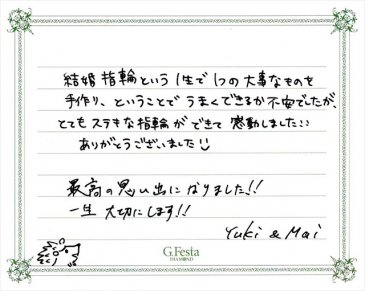 結婚指輪という1生で1つの大事なものを
手作り、ということでうまくできるか不安でしたが、
とてもステキな指輪ができて感動しました::
ありがとうございました
最高の思い出になりました!!
一生大切にします!!
Yuki & Mai
G.Festa
DIAMOND